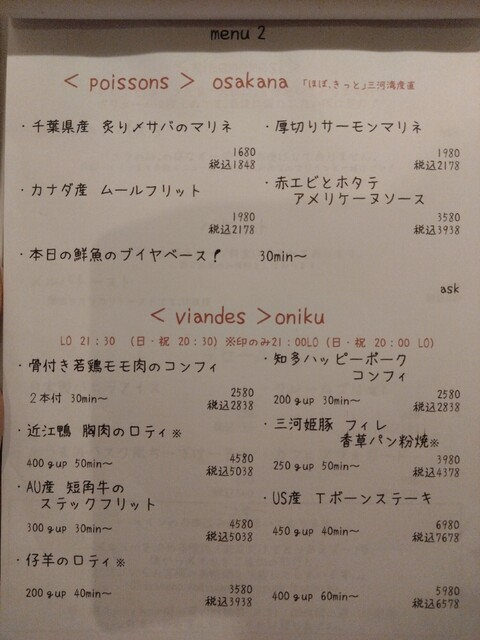 menu 2
< poissons > osakana 「ほぼ、きっと」三河湾産直
・千葉県産 炙りメサバのマリネ
1680
税込1848
・厚切りサーモンマリネ
1980
税込2178
・カナダ産 ムールフリット
1980
税込2178
・赤エビとホタテ
アメリケーヌソース
3580
税込3938
・本日の鮮魚のブイヤベース! 30min〜
ask
< viandes >oniku
LO 21:30 (日・祝 20:30) ※印のみ21:00LO (日・祝 20:00 LO)
・骨付き若鶏モモ肉のコンフィ
2本付 30min〜
2580
税込2838
・知多ハッピーポーク
コンフィ
200gup 30min〜
2580
税込2838
・近江鴨 胸肉のロティ※
400gup 50min〜
4580
税込5038
・三河姫豚 フィレ
香草パン粉焼※
250gup 50min〜
3980
税込4378
・AU産 短角牛の
ステックフリット
300gup 30min〜
4580
税込5038
・US産 Tボーンステーキ
450gup 40min〜
6980
税込7678
・仔羊のロティ※
200gup 40min〜
3580
税込3938
400gup 60min〜
5980
税込6578